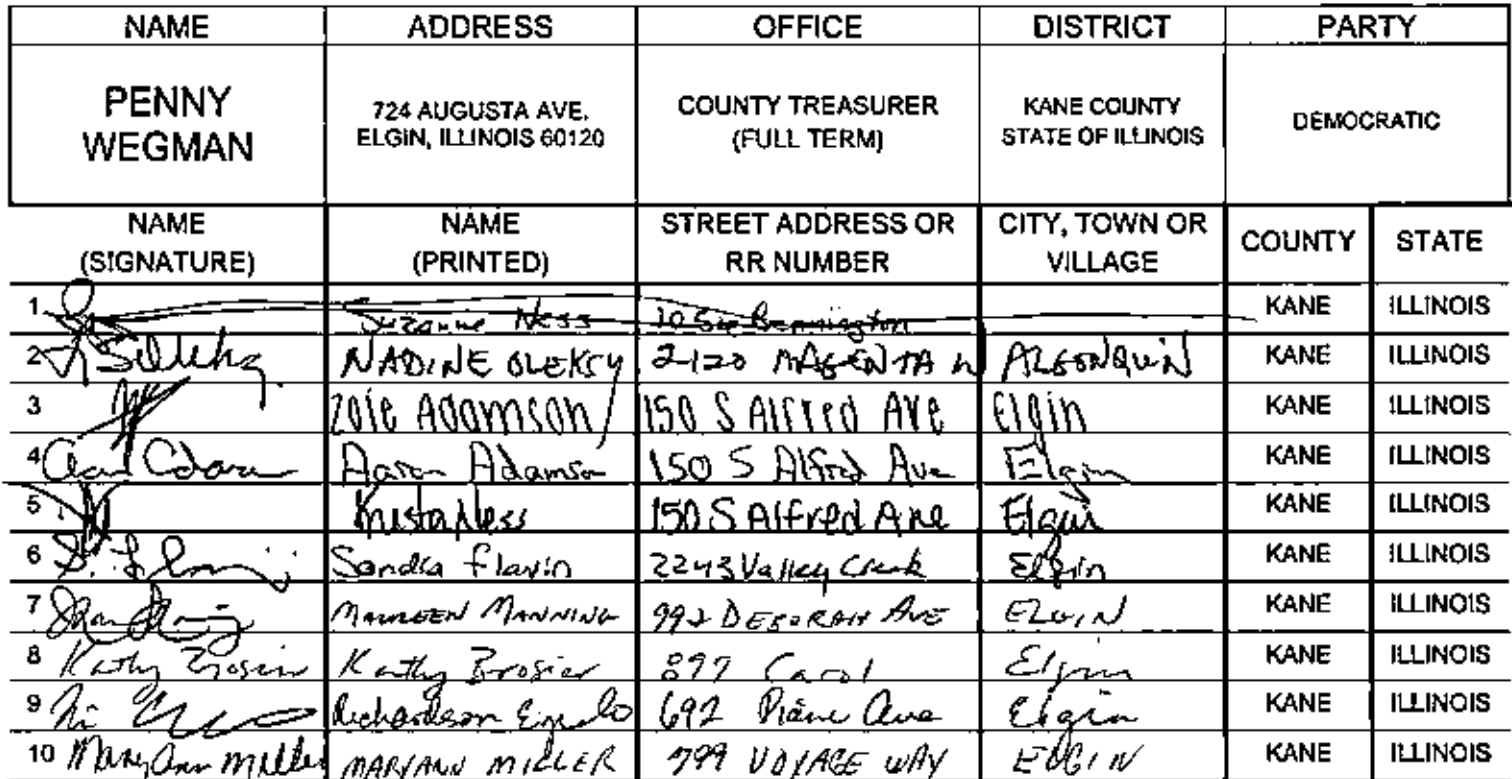 NAME ADDRESS OFFICE DISTRICT PARTY
PENNY WEGMAN 724 AUGUSTA AVE. ELGIN, ILLINOIS 60120 COUNTY TREASURER (FULL TERM) KANE COUNTY STATE OF ILLINOIS DEMOCRATIC
NAME (SIGNATURE) NAME (PRINTED) STREET ADDRESS OR RR NUMBER CITY, TOWN OR VILLAGE COUNTY STATE
1 Suzanne Ness KANE ILLINOIS
2 NADINE OLEKSY 2120 MAGENTA ALGONQUIN KANE ILLINOIS
3 Zoie Adamson 150 S Alfred Ave Elgin KANE ILLINOIS
4 Aaron Adamson 150 S Alfred Ave Elgin KANE ILLINOIS
5 Krista Ness 150 S Alfred Ave Elgin KANE ILLINOIS
6 Sandra Flavin 2243 Valley Creek Elgin KANE ILLINOIS
7 MAUREEN MANNING 992 DEBORAH AVE ELGIN KANE ILLINOIS
8 Kathy Brosier Kathy Brosier 897 Carol Elgin KANE ILLINOIS
9 Richardson 692 Ave Elgin KANE ILLINOIS
10 Mary Ann Miller MARYANN MILLER 799 VOYAGE WAY ELGIN KANE ILLINOIS